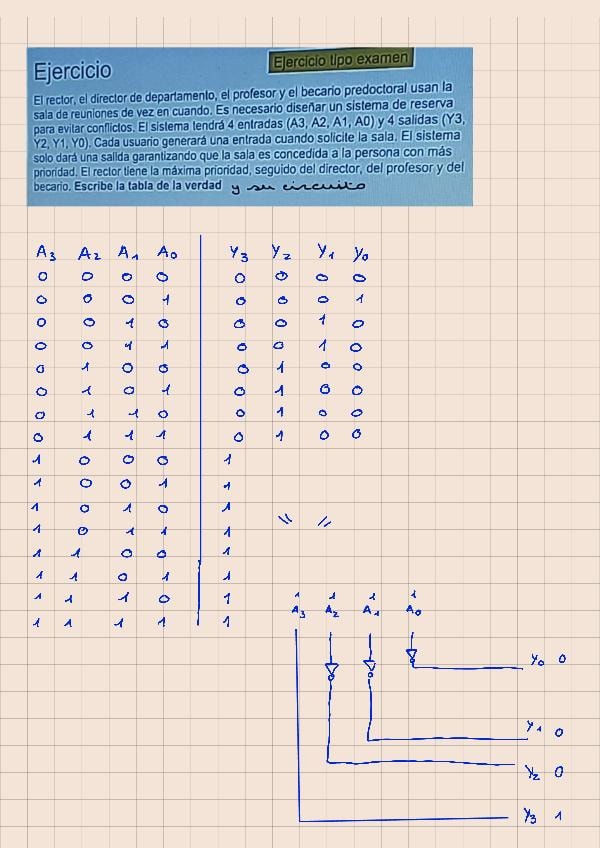 Ejercicio tipo examen
Ejercicio
El rector, el director de departamento, el profesor y el becario predoctoral usan la
sala de reuniones de vez en cuando. Es necesario diseñar un sistema de reserva
para evitar conflictos. El sistema tendrá 4 entradas (A3, A2, A1, A0) y 4 salidas (Y3,
Y2, Y1, Y0). Cada usuario generará una entrada cuando solicite la sala. El sistema
solo dará una salida garantizando que la sala es concedida a la persona con más
prioridad. El rector tiene la máxima prioridad, seguido del director, del profesor y del
becario. Escribe la tabla de la verdad y su circuito
A3 A2 A1 A0 Y3 Y2 Y1 Y0
0 0 0 0 0 0 0 0
0 0 0 1 0 0 0 1
0 0 1 0 0 0 1 0
0 0 1 1 0 0 1 0
0 1 0 0 0 1 0 0
0 1 0 1 0 1 0 0
0 1 1 0 0 1 0 0
0 1 1 1 0 1 0 0
1 0 0 0 1
1 0 0 1 1
1 0 1 0 1
1 0 1 1 1 \\ //
1 1 0 0 1
1 1 0 1 1
1 1 1 0 1
1 1 1 1 1
1 1 1 1
A3 A2 A1 A0
Y0 0
Y1 0
Y2 0
Y3 1